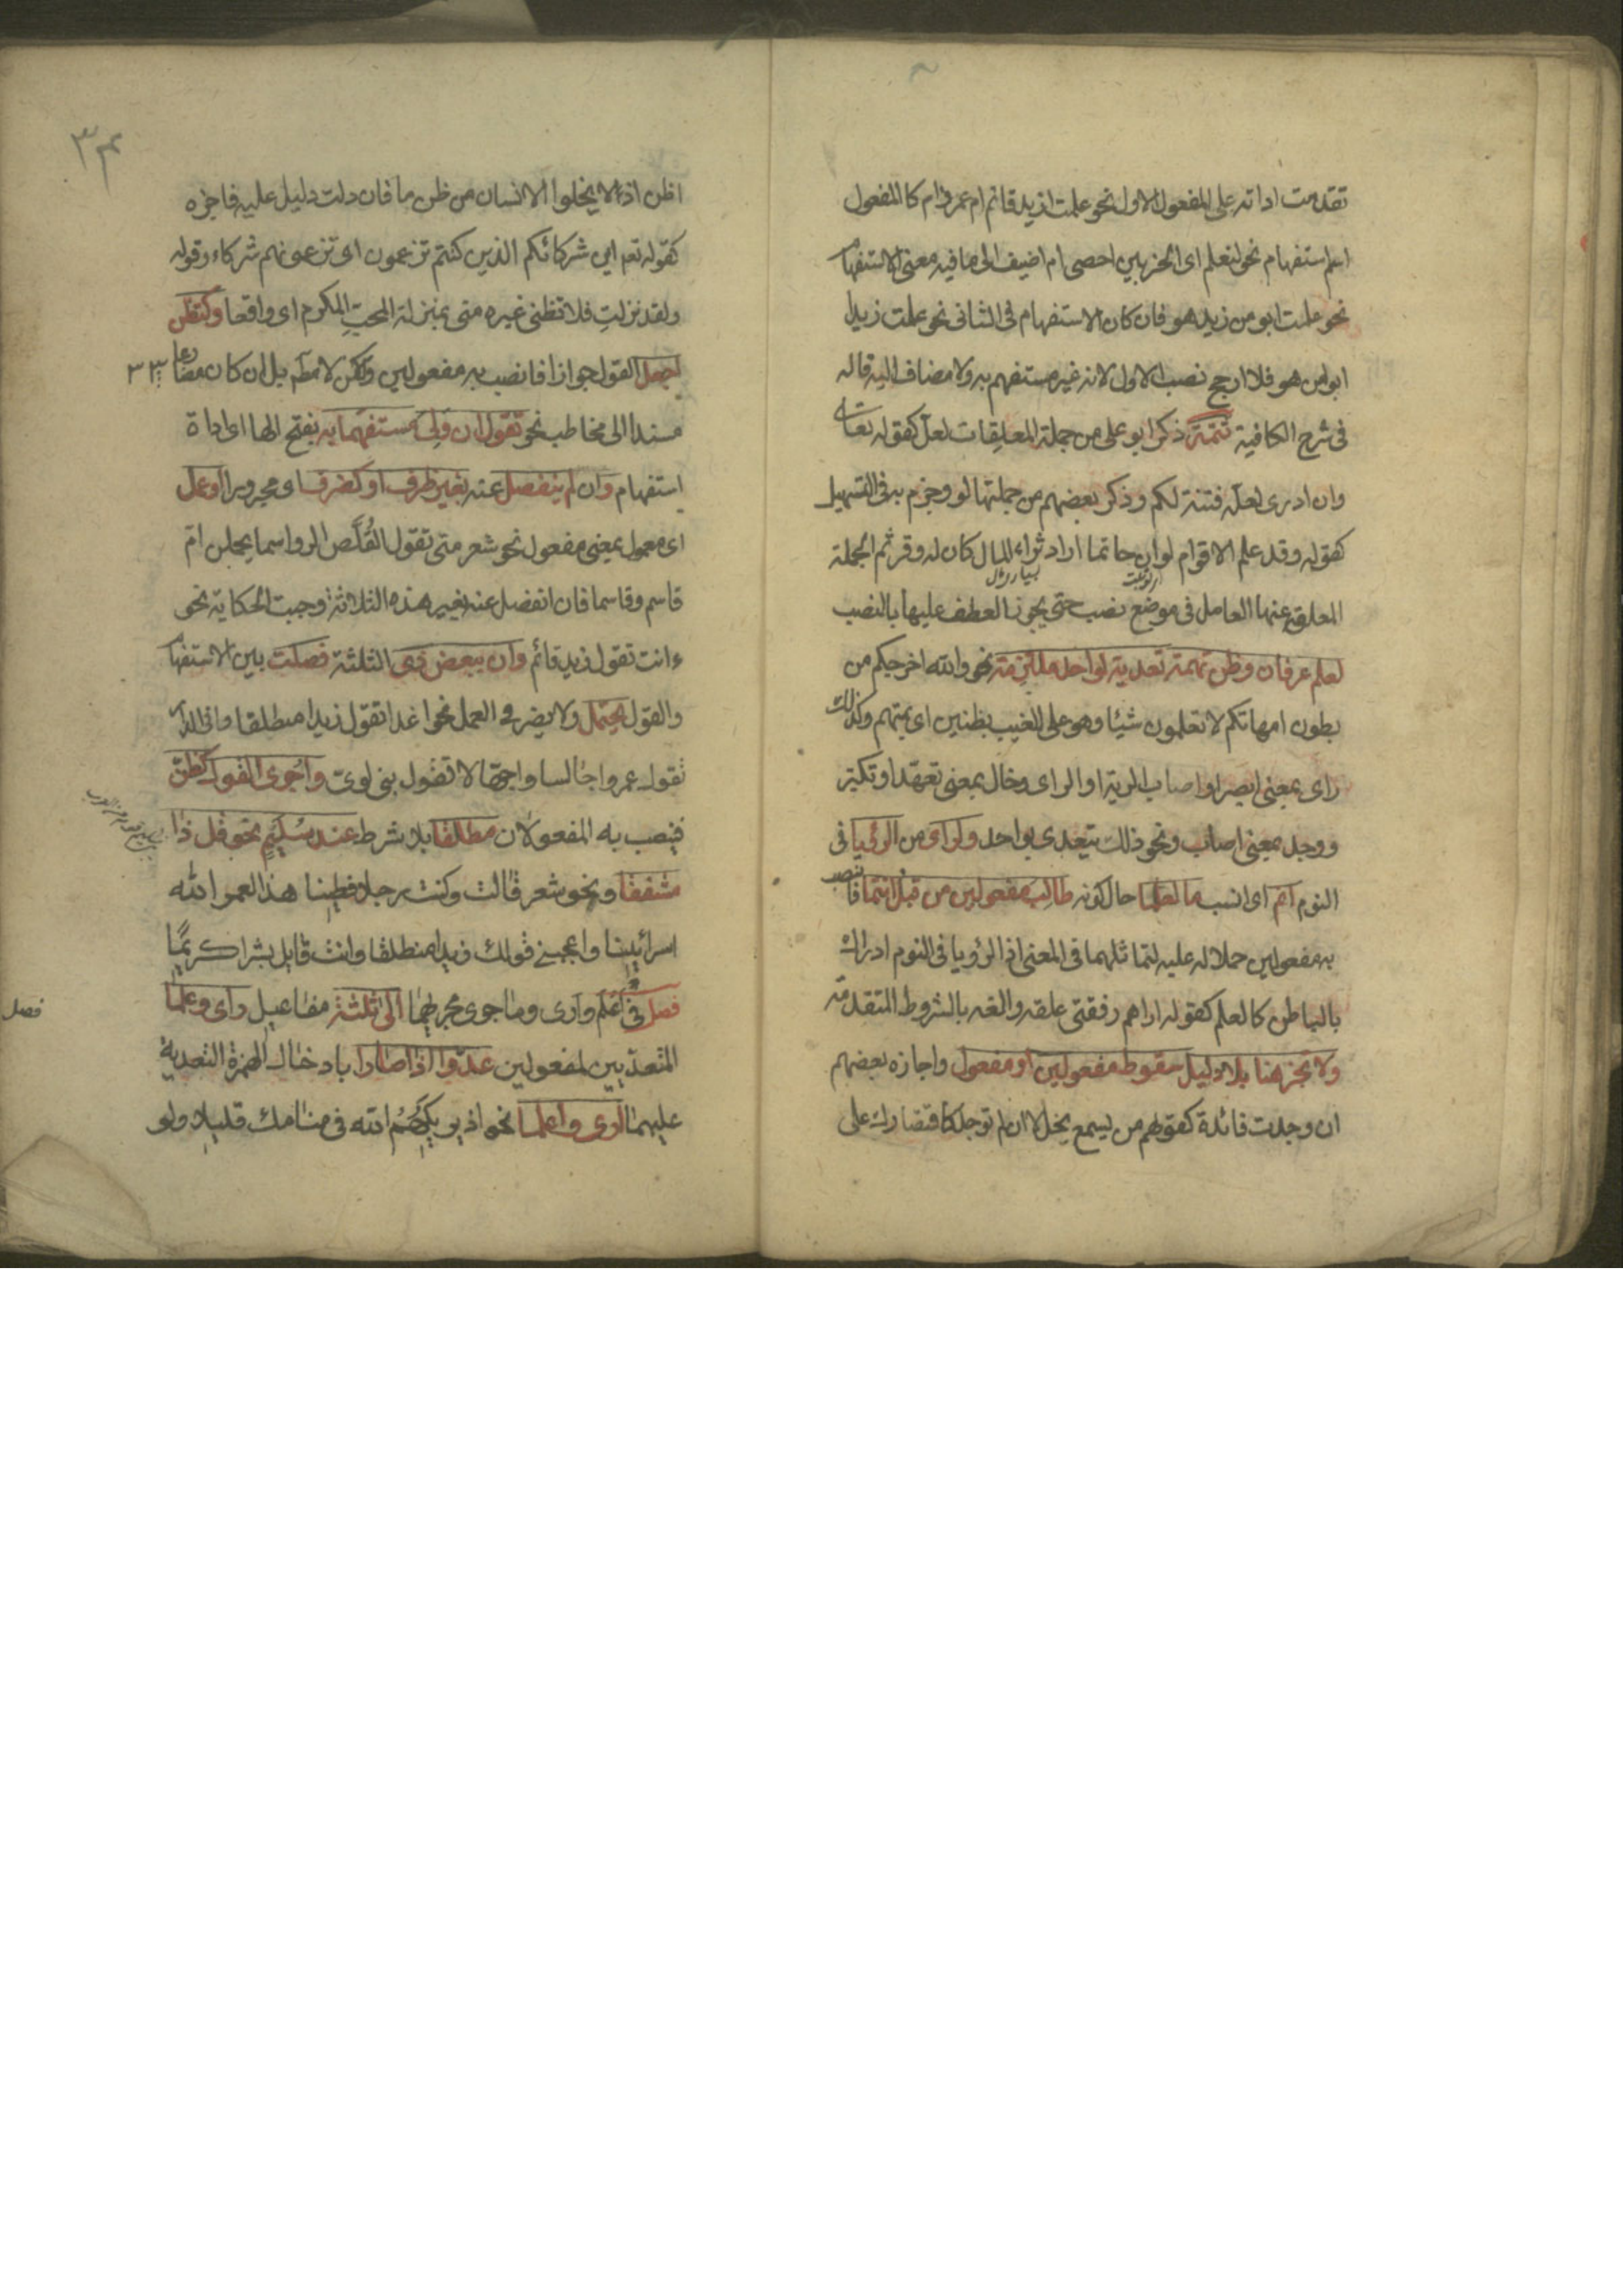 تقدمت اداته على المفعول الاول نحو علمت ازيد قائم ام عمرو ام كا المفعول
اسم استفهام نحو لنعلم اى الحزبين احصى ام اضيف الى ما فيه معنى الاستفهام
نحو علمت ابو من زيد هو فان كان الاستفهام فى الثانى نحو علمت زيدا
ابو من هو فلا ارجح نصب الاول لانه غير مستفهم به ولا مضاف اليه قاله
فى شرح الكافية تتمة ذكر ابو على من جملة المعلقات لعل كقوله تعالى
وان ادرى لعله فتنة لكم وذكر بعضهم من جملتها لو وجزم به فى التسهيل
كقوله وقد علم الاقوام لو ان حاتما اراد ثراء المال كان له وفر ثم الجملة
المعلق عنها العامل فى موضع نصب حتى يجوز العطف عليها بالنصب
لعلم عرفان وظن تهمة تعدية لواحد ملتزمة نحو والله اخرجكم من
بطون امهاتكم لا تعلمون شيئا وهو على الغيب بظنين اى بمتهم وكذلك
راى بمعنى ابصر او اصاب الرية او الراى وخال بمعنى تعهد او تكبر
ووجد بمعنى اصاب ونحو ذلك يتعدى بواحد ولراى من الرؤيا فى
النوم انم اى انسب ما لعلما حال كونه طالب مفعولين من قبل انتما فانصب
به مفعولين حملا له عليه لتماثلهما فى المعنى اذ الرؤيا فى النوم ادراك
بالباطن كالعلم كقوله اراهم رفقتى علقه والغه بالشروط المتقدمة
ولا تجز هنا بلا دليل سقوط مفعولين او مفعول واجازه بعضهم
ان وجدت فائدة كقولهم من يسمع يخل لا ان لم توجد كاقتصارك على
٣٤
اظن اذ لا يخلوا الانسان من ظن ما فان دلت دليل عليه فاجزه
كقوله تعم اين شركائكم الذين كنتم تزعمون اى تزعمونهم شركاء وقوله
ولقد نزلت فلا تظنى غيره منى بمنزلة المحب المكرم اى واقعا وكتظن
اجعل القول جوازا فانصب به مفعولين ولكن لا مطلقا بل ان كان مضارعا
مسندا الى مخاطب نحو تقول ان ولى مستفهما به بفتح الها اى اداة
استفهام وان لم ينفصل عنه بغير ظرف او كظرف اى مجرور او عمل
اى معمول بمعنى مفعول نحو شعر متى تقول القلص الرواسما يحملن ام
قاسم وقاسما فان انفصل عنه بغير هذه الثلاثة وجبت الحكاية نحو
ءانت تقول زيد قائم وان ببعض ذى الثلثة فصلت بين الاستفهام
والقول يحتمل ولا يضر فى العمل نحو اغدا تقول زيدا منطلقا وافى الدار
تقول عمروا جالسا واجهالا تقول بنى لوى واجرى القول كظن
فينصب به المفعولان مطلقا بلا شرط عند سليم نحو قل ذا
مشفقا ونحو شعر قالت وكنت رجلا فطينا هذا لعمر الله
اسرائينا واعجبنى قولك زيدا منطلقا وانت قايل بشرا كريما
فصل فى اعلم وارى وما جرى مجرٰيهما الى ثلثة مفاعيل راى وعلما
المتعديين لمفعولين عدوا اذا صارا بادخال الهمزة التعدية
عليهما ارى واعلما نحو اذ يريكهم الله فى منامك قليلا ولو
فصل